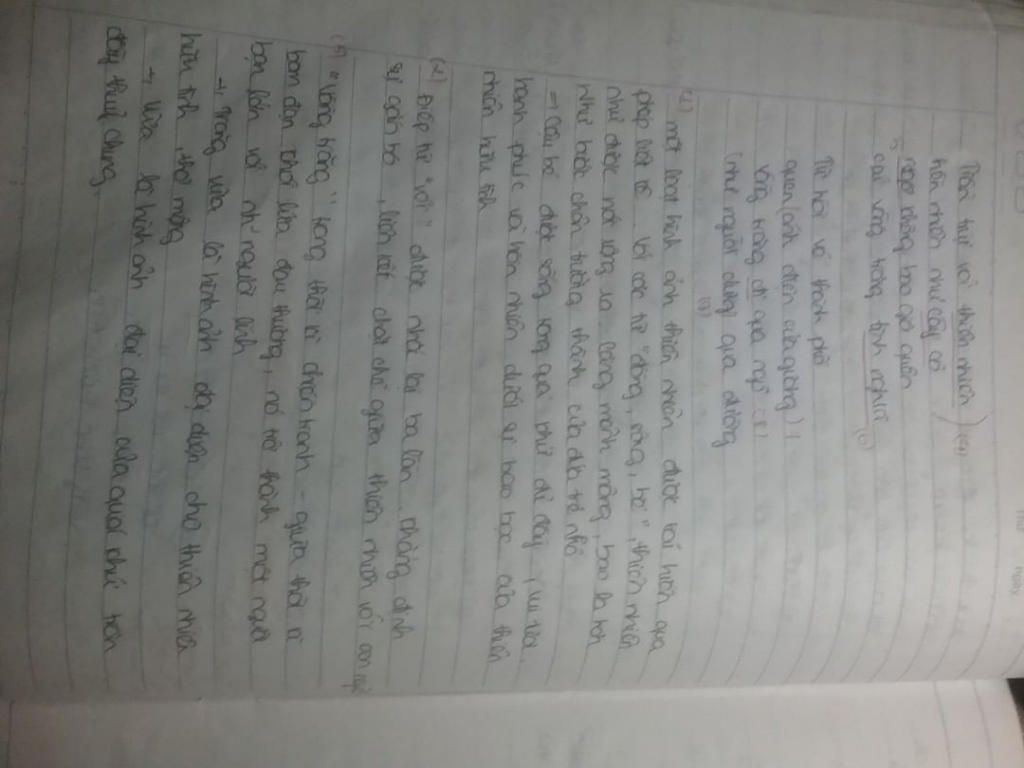 Trần trụi với thiên nhiên (4)
hồn nhiên như cây cỏ
ngỡ không bao giờ quên
cái vầng trăng tình nghĩa
Từ hồi về thành phố
quen ánh điện cửa gương
vầng trăng đi qua ngõ
như người dưng qua đường
một loạt hình ảnh thiên nhiên được tái hiện qua
phép liệt kê với các từ "đồng, sông, bể", thiên nhiên
như được nới rộng ra mênh mông, bao la hơn
như bước chân trưởng thành của đứa trẻ nhỏ
→ Cậu bé được sống trong quá khứ đủ đầy, vui tươi,
hạnh phúc và hồn nhiên dưới sự bao bọc của thiên
nhiên hữu tình
Điệp từ "với" được nhắc lại ba lần, khẳng định
sự gắn bó, liên kết chặt chẽ giữa thiên nhiên với con ng
"Vầng trăng" trong thời kì chiến tranh - giữa thời kì
bom đạn khói lửa đau thương, nó trở thành một người
bạn lớn với người lính
→ Trăng vừa là hình ảnh đại diện cho thiên nhiên
hữu tình, thơ mộng
→ Vừa là hình ảnh đại diện của quá khứ tròn
đầy thuỷ chung